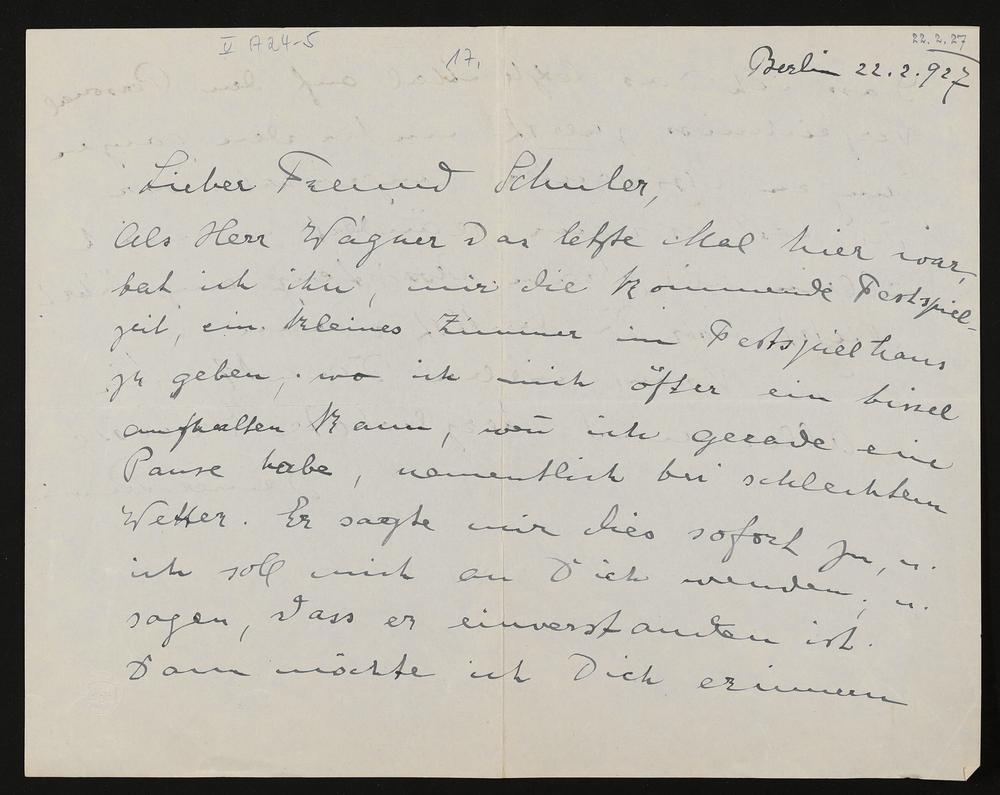 V A 24-5
17.
22. 2. 27
Berlin 22. 2. 927
Lieber Freund Schuler,
Als Herr Wagner das letzte Mal hier war,
bat ich ihn, mir die kommende Festspiel-
zeit, ein kleines Zimmer im Festspielhaus
zu geben, wo ich mich öfter ein bissel
aufhalten kann, wen̄ ich gerade eine
Pause habe, namentlich bei schlechtem
Wetter. Er sagte mir dies sofort zu, u.
ich soll mich an Dich wenden, u.
sagen, dass er einverstanden ist.
Dann möchte ich Dich erinnern